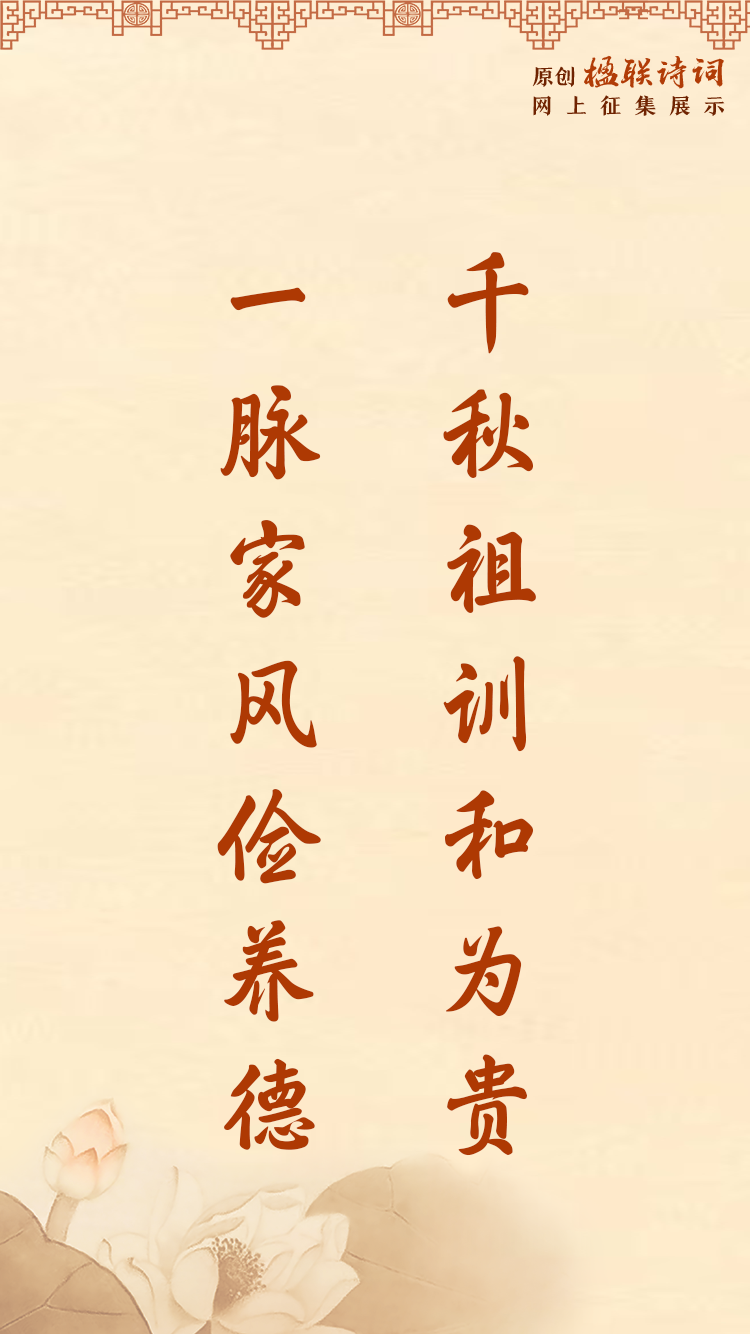 原创 楹联诗词
网上征集展示
千秋祖训和为贵
一脉家风俭养德